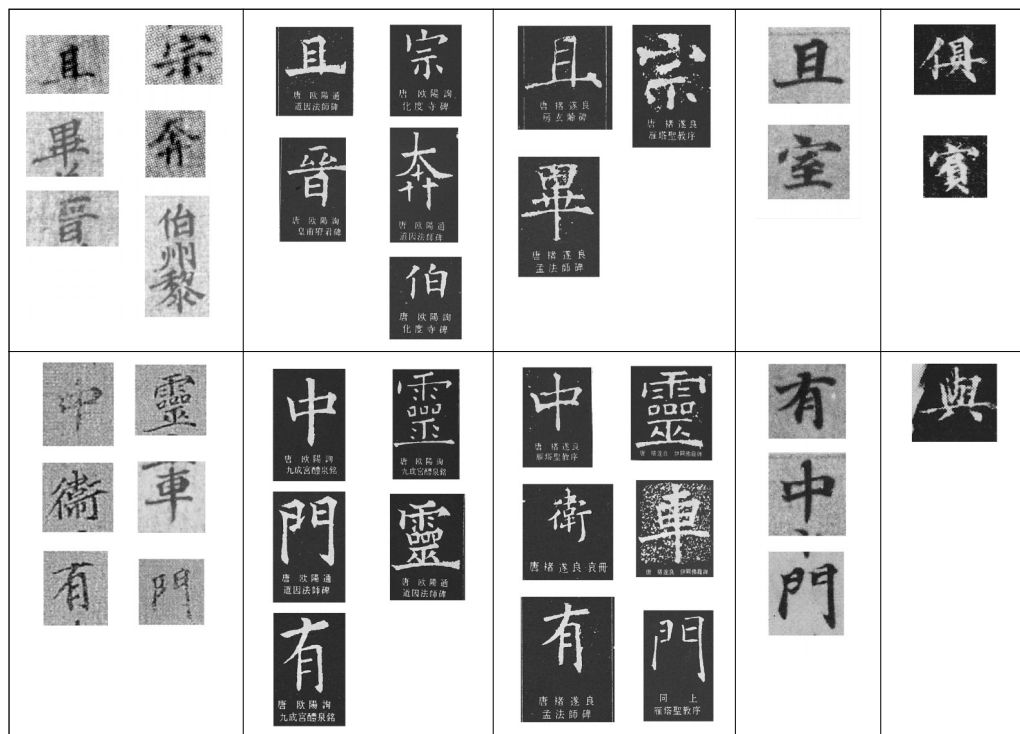 且
宗
畢
奔
晉
伯州黎
且
唐 歐陽通
道因法師碑
宗
唐 歐陽詢
化度寺碑
晉
唐 歐陽詢
皇甫府君碑
奔
唐 歐陽通
道因法師碑
伯
唐 歐陽詢
化度寺碑
且
唐 褚遂良
房玄齡碑
宗
唐 褚遂良
雁塔聖教序
畢
唐 褚遂良
孟法師碑
且
室
俱
賓
中
靈
衞
車
有
門
中
唐 歐陽詢
九成宮醴泉銘
靈
唐 歐陽詢
九成宮醴泉銘
門
唐 歐陽通
道因法師碑
靈
唐 歐陽通
道因法師碑
有
唐 歐陽詢
九成宮醴泉銘
中
唐 褚遂良
雁塔聖教序
靈
唐 褚遂良 伊闕佛龕碑
衛
唐 褚遂良 哀冊
車
唐 褚遂良 伊闕佛龕碑
有
唐 褚遂良
孟法師碑
門
同 上
雁塔聖教序
有
中
門
與